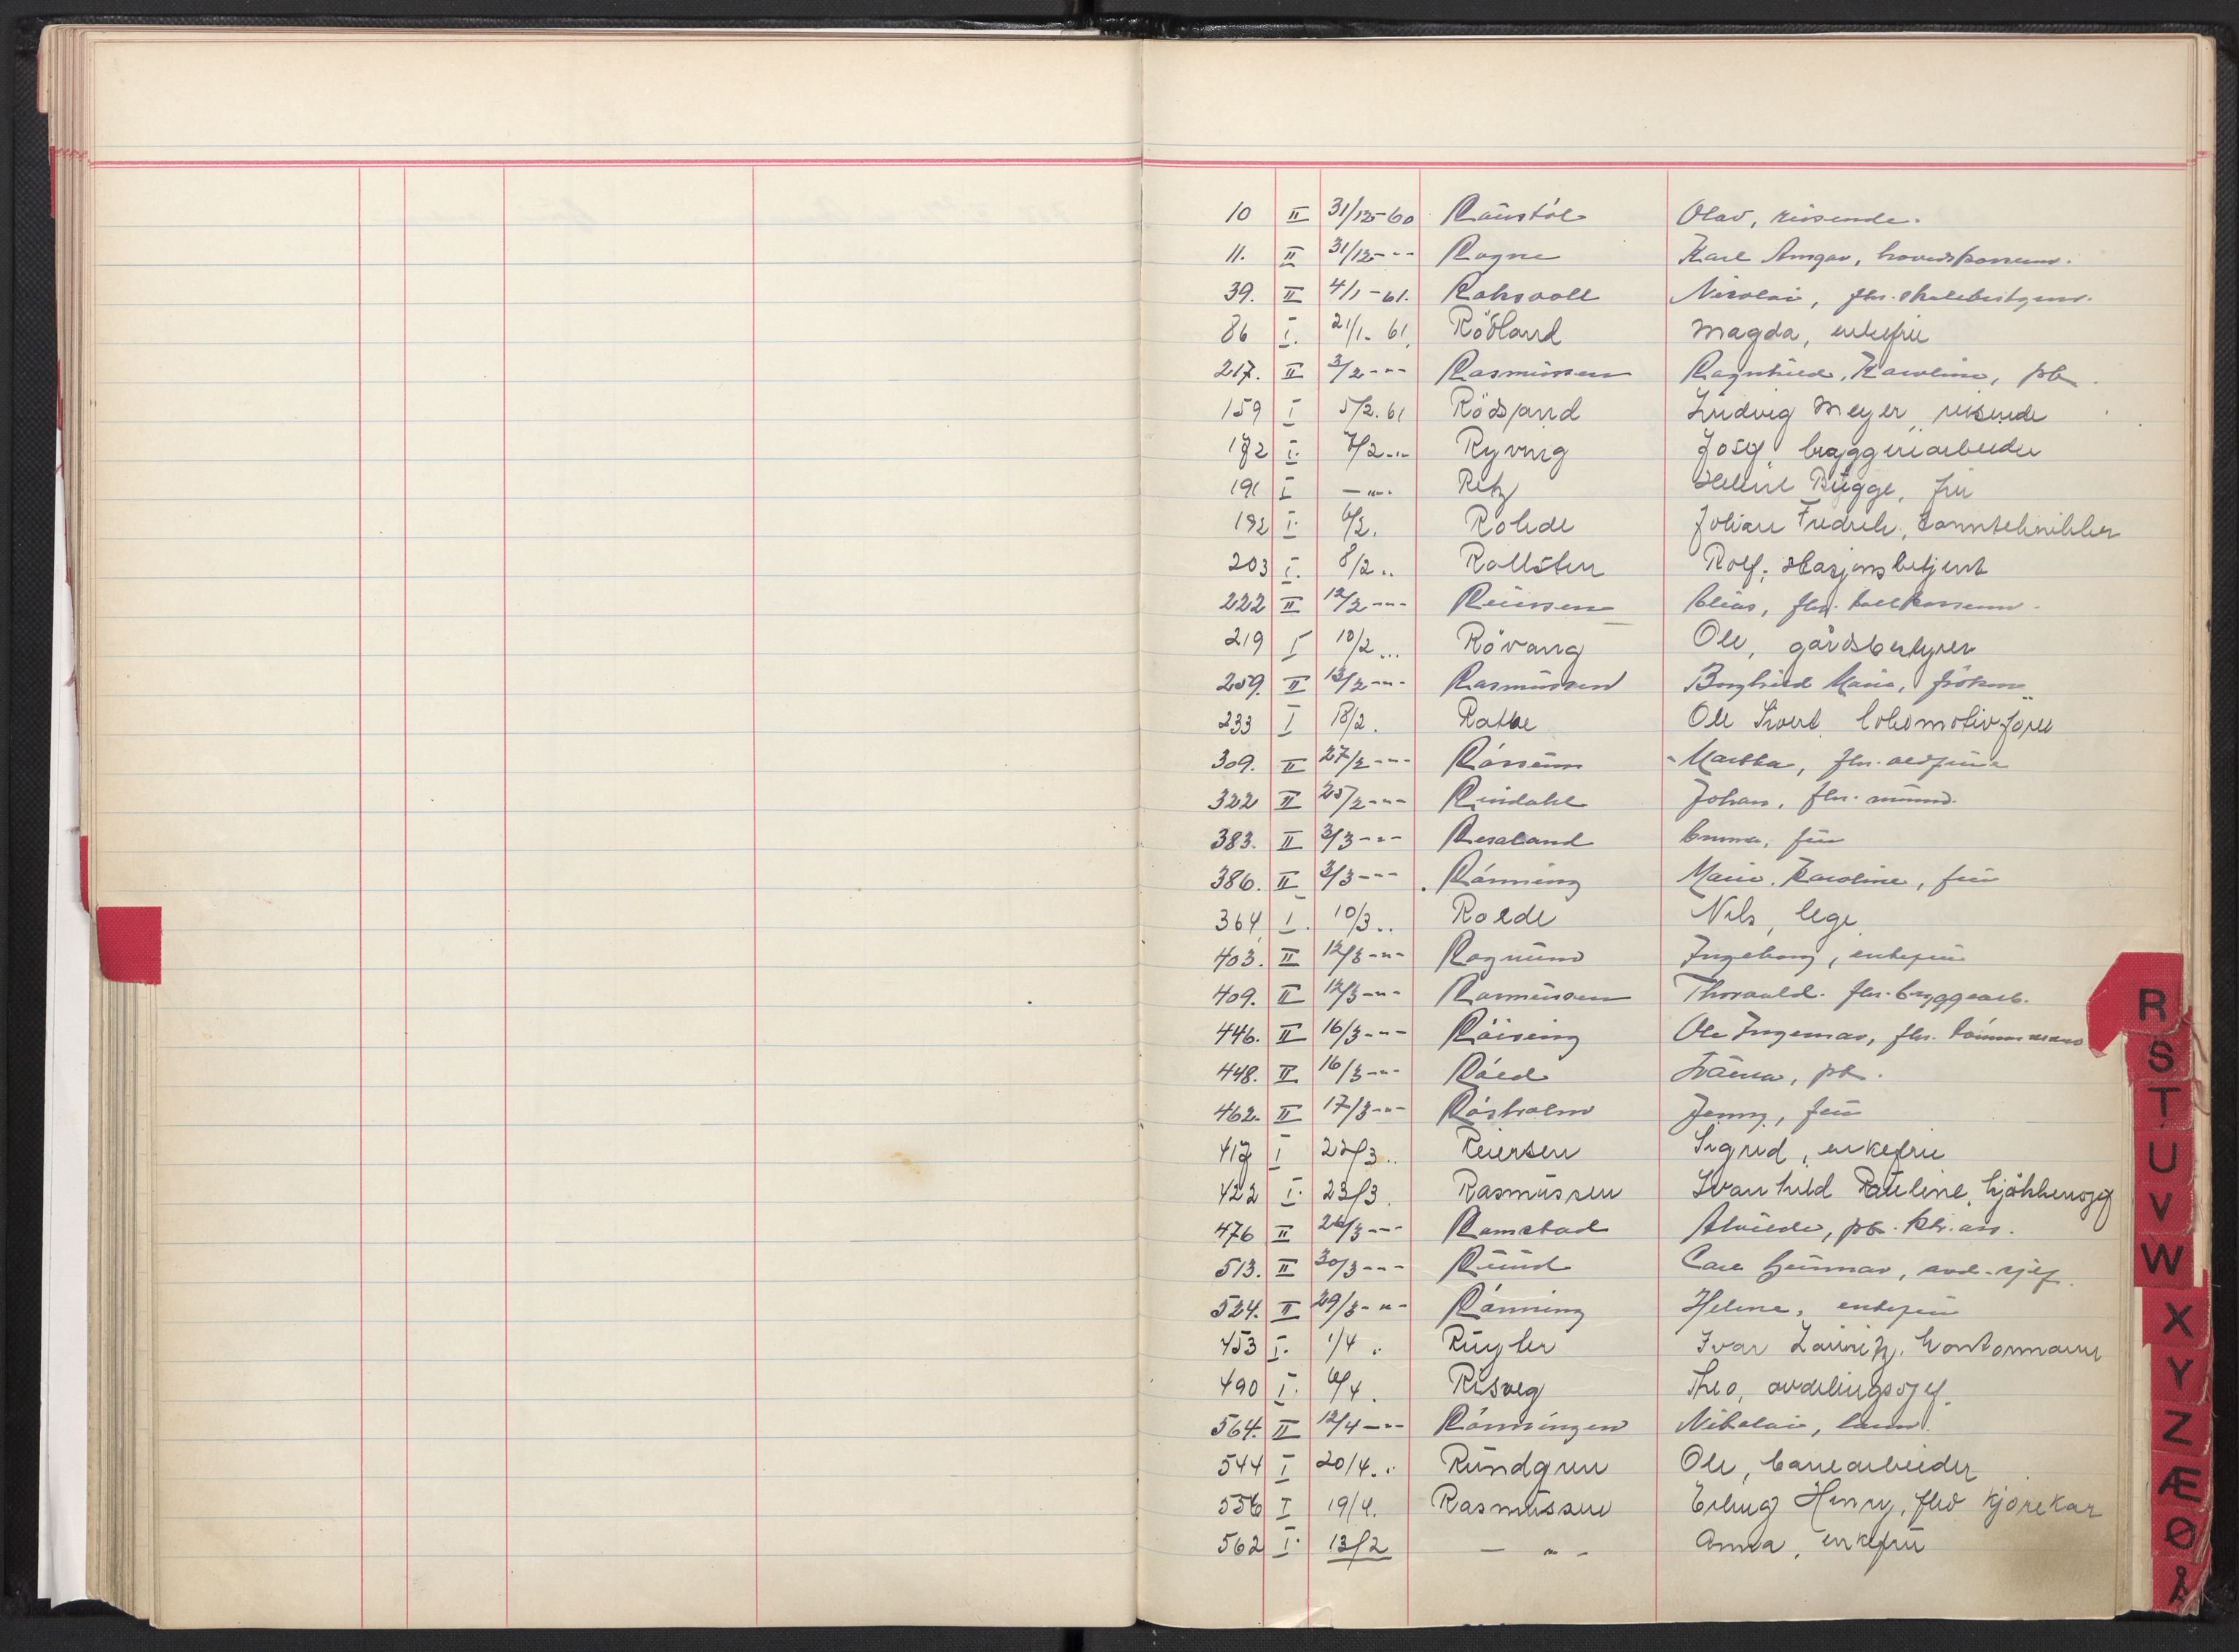 10 II 31/12-60 Raustøl Olav, reisende.
11. II 31/12-"- Rogne Karl Ansgar, hovedkasserer.
39. II 4/1-61. Rohsvoll Nicolai, fhv. skolebestyrer.
86 I. 21/1-61. Rödland Magda, enkefru
217. II 3/2-"- Rasmussen Ragnhild, Karoline, pb.
159 I 5/2.61 Rödsand Ludvig Meyer, reisende
172 I. 7/2-"- Ryvnig Josef, bryggeriarbeider
191 I -"-. Retz Helene Bugge, fru
192 I. 6/2. Rohde Johan Fredrik, tanntekniker
203 I. 8/2.. Rollsten Rolf, stasjonsbetjent
222 II 12/2-"- Reiersen Elias, fhv. tollkasserer.
219 I 10/2... Rövang Ole, gårdsbestyrer
259. II 13/2-"- Rasmussen Borghild Marie, frøken
233 I 18/2. Ratke Ole Sivert, lokomotivfører
309. II 27/2-"- Martha, fhv.
322 II 25/2-"- Rindahl Johan, fhv.
383. II 3/3-"- Resaland Emma, fru
386. II 3/3-"- Rønning Marie Karoline, fru
364 I. 10/3.. Rolde Nils, lege
403. II 12/3-"- Rogmund Ingeborg, enkefru
409. II 12/3-"- Rasmussen Thorvald. fhv. bryggearb.
446. II 16/3-"- Röising Ole Ingemar, fhv. tømmermann
448. II 16/3-"- Röed pb.
462. II 17/3-"- Røsholm Jenny, fru
417 I 22/3.. Reiersen Sigrid, enkefru
422 I. 23/3. Rasmussen Svanhild Pauline, kjøkkensjef
476 II 26/3-"- Ramstad Alvilde, pb. ktr.ass.
513. II 30/3-"- Ruud Carl Gunnar, avd.sjef.
524. II 29/3-"- Rønning Helene, enkefru
453 I. 1/4 .. Rugler Ivar Lauritz, kontormann
490 I. 6/4. Risveg Theo, avdelingssjef.
564. II 12/4-"- Rønningen Nikolai,
544 I 20/4... Rundgren Ole, banearbeider
556 I 19/4. Rasmussen Erling Henry, fhv kjørekar
562 I. 13/2 - " - Anna, enkefru
R
S
T
U
V
W
X
Y
Z
Æ
Ø
Å